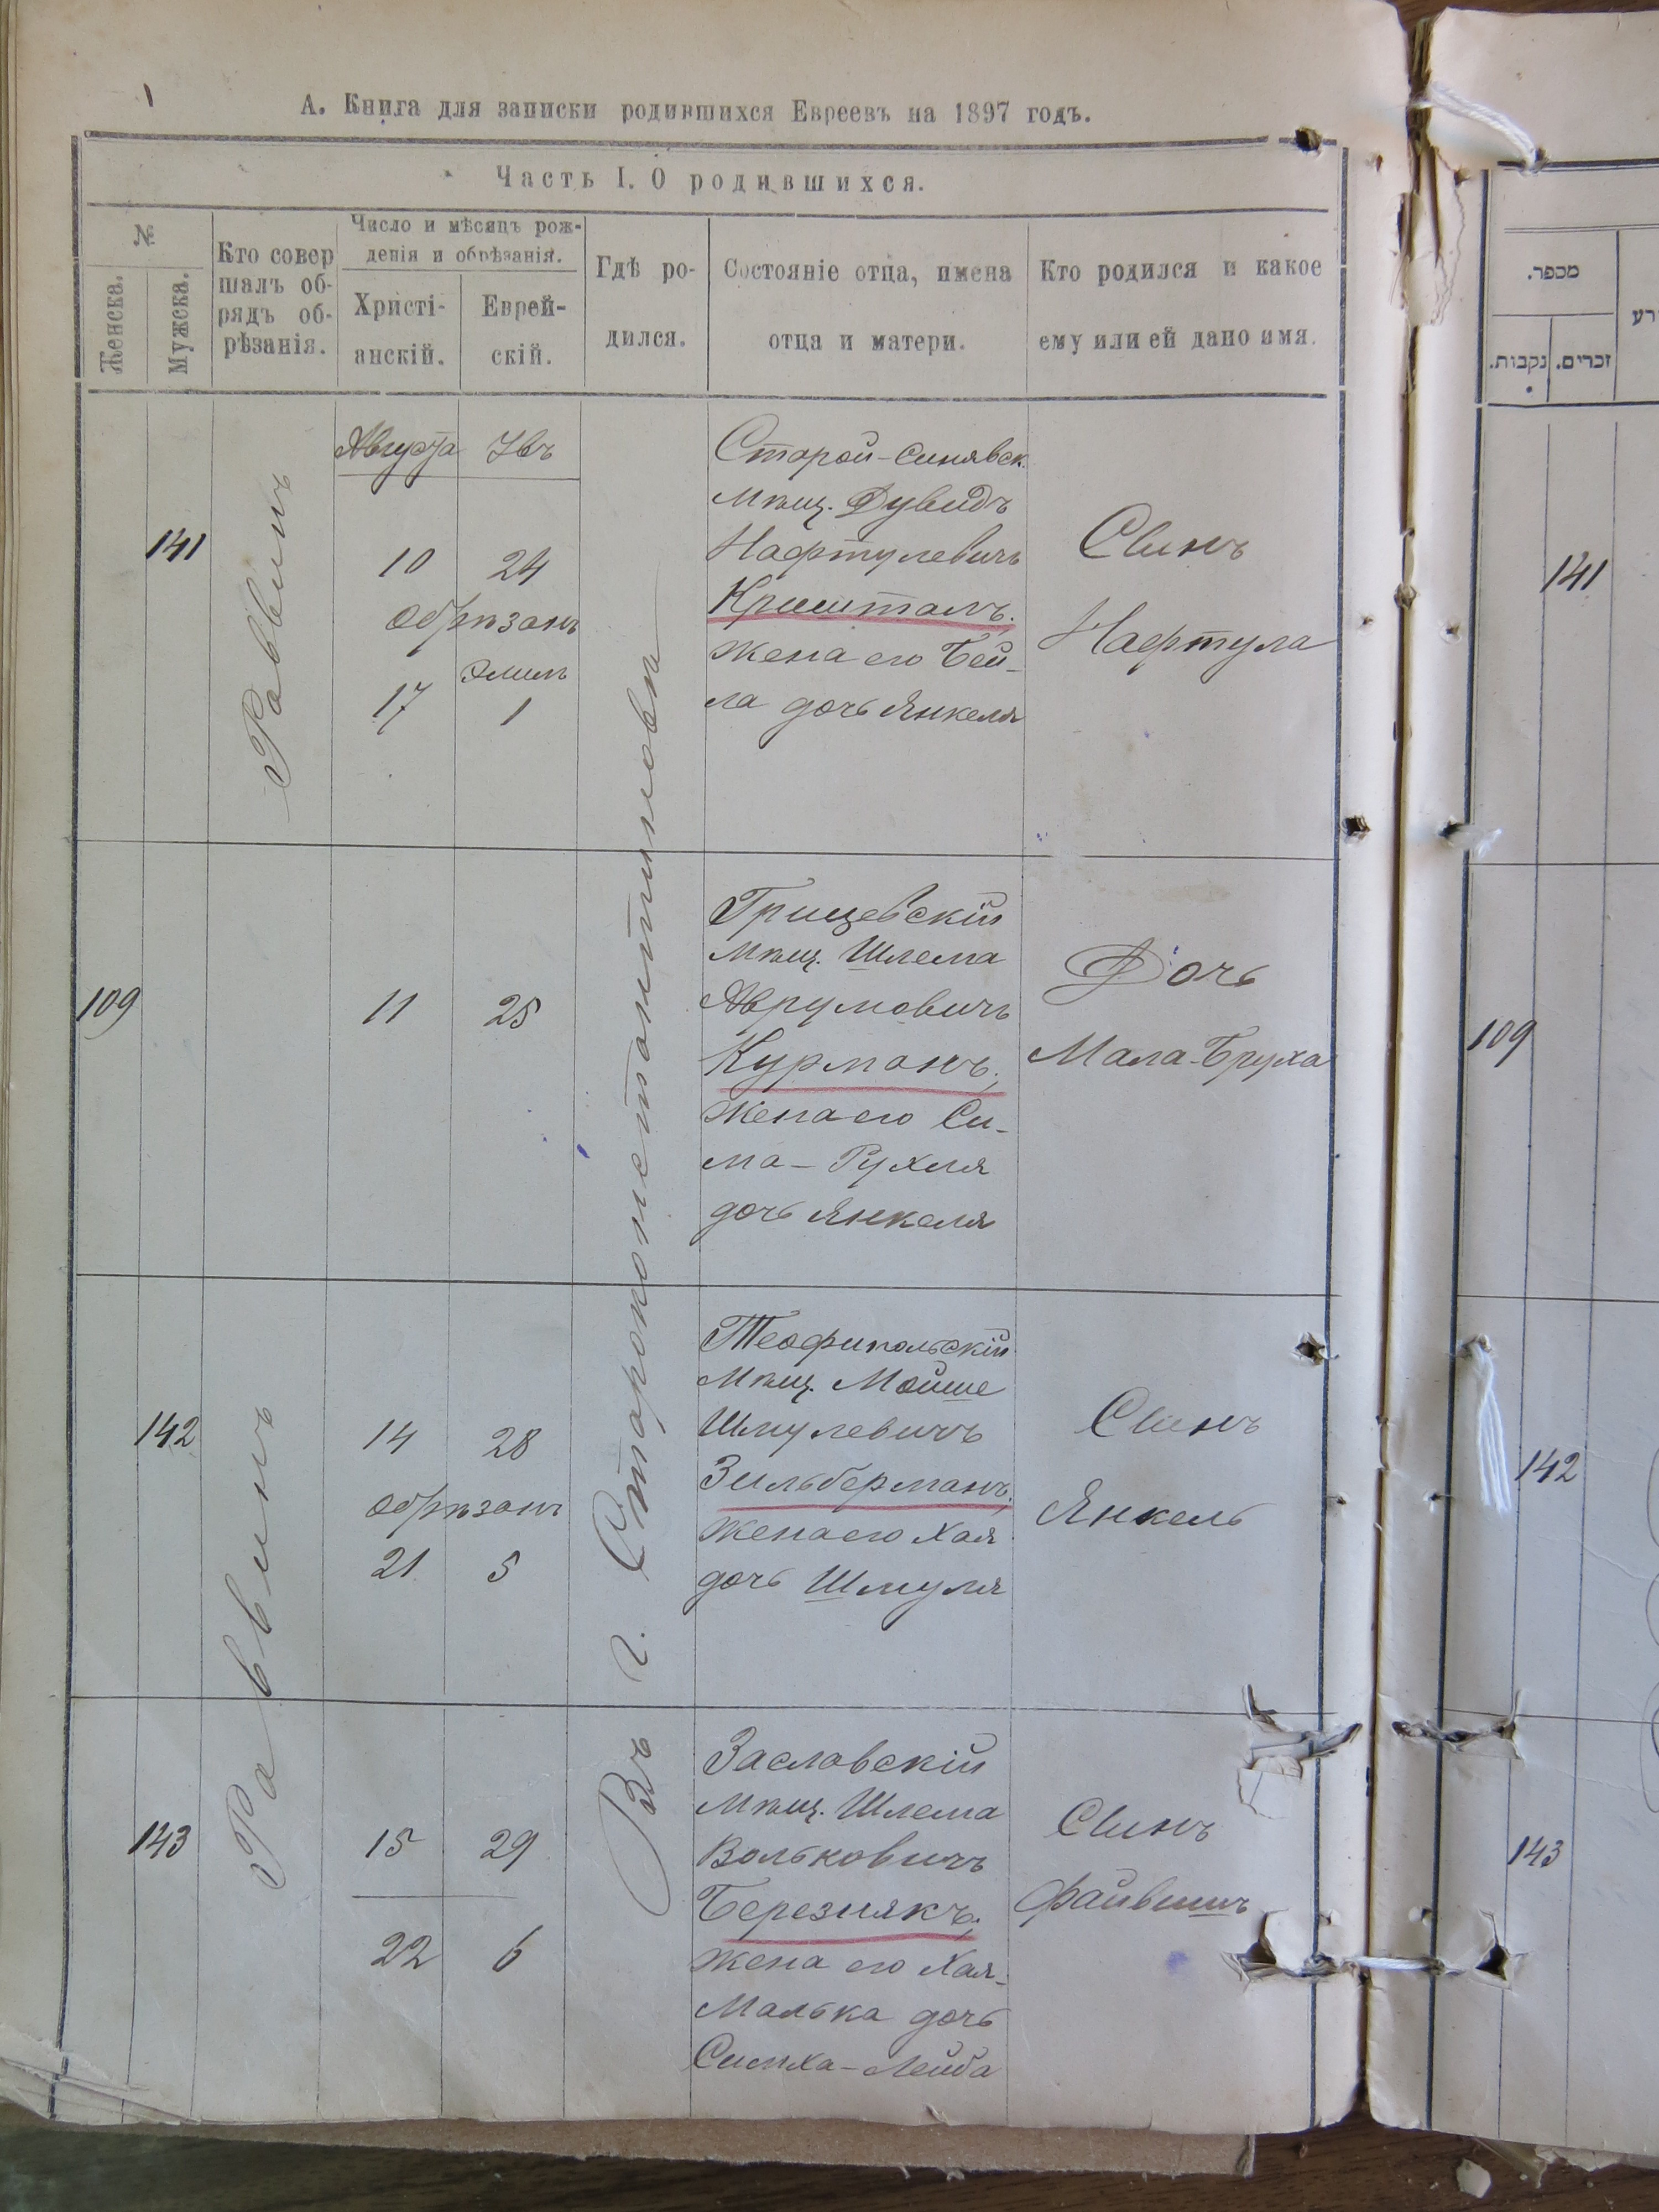 А. Книга для записки родившихся Евреевъ на 1897 годъ.
Часть I. О родившихся.
№
Женска.
Мужска.
Кто совер
шалъ об-
рядъ об-
рѣзанія.
Число и мѣсяцъ рож-
денія и обрѣзанія.
Христі-
анскій.
Еврей-
скій.
Гдѣ ро-
дился.
Состояніе отца, имена
отца и матери.
Кто родился и какое
ему или ей дано имя.
Въ г. Староконстантиновѣ
141
Раввинъ
Августа
Увъ
10
24
обрѣзанъ
Элилъ
17
1
Старой-Синявск.
мѣщ. Дувидъ
Нафтулевичъ
Криштолъ;
жена его Бей-
ла дочь Янкеля
Сынъ
Нафтула
109
11
25
Грицевскій
мѣщ. Шлема
Аврумовичъ
Курманъ;
жена его Си-
ма-Рухля
дочь Янкеля
Дочь
Мала-Бруха
142
Раввинъ
14
28
обрѣзанъ
21
5
Теофипольскій
мѣщ. Мойше
Шмулевичъ
Зильберманъ;
жена его Хая
дочь Шмуля
Сынъ
Янкель
143
15
29
22
6
Заславскій
мѣщ. Шлема
Вольковичъ
Березнякъ;
жена его Хая-
Малька дочь
Симха-Лейба
Сынъ
Файвишъ
מכפר.
נקבות.
זכרים.
רע
141
109
142
143